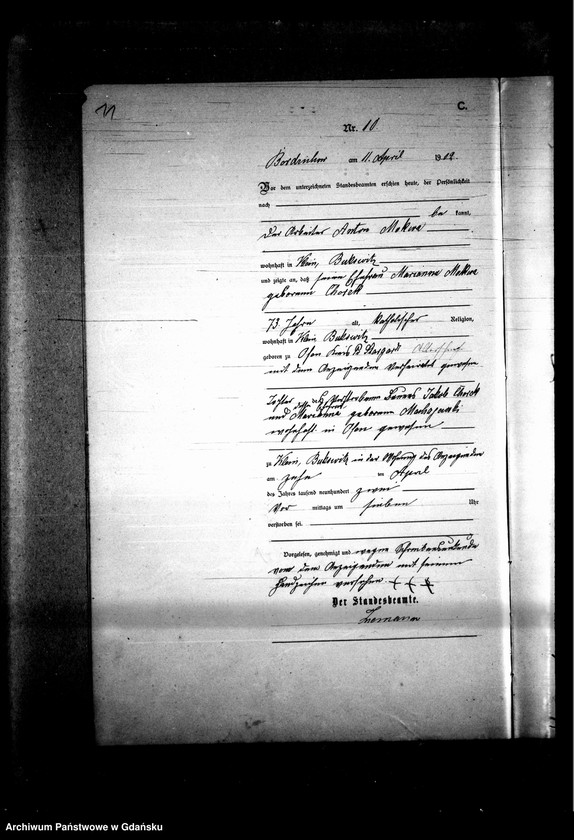 11
C.
Nr. 10.
am 11. April 1902.
Vor dem unterzeichneten Standesbeamten erschien heute, der Persönlichkeit
nach
be kannt,
der Arbeiter Anton
wohnhaft in Klein
und zeigte an, daß seine Ehefrau Marianna
geborene
73 Jahre alt, katholischer Religion,
wohnhaft in Klein
geboren zu Osen Kreis Pr. Stargard
mit dem Anzeigenden verheirathet gewesen
Tochter des verstorbenen Jakob
und Marianna geborene
wohnhaft in Osen gewesen
zu Klein in der Wohnung des Anzeigenden
am zehn ten April
des Jahres tausend neunhundert zwei
Vor mittags um sieben Uhr
verstorben sei.
Vorgelesen, genehmigt und wegen Schreibensunkunde
von dem Anzeigenden mit seinem
Handzeichen versehen + + +
Der Standesbeamte.
Archiwum Państwowe w Gdańsku